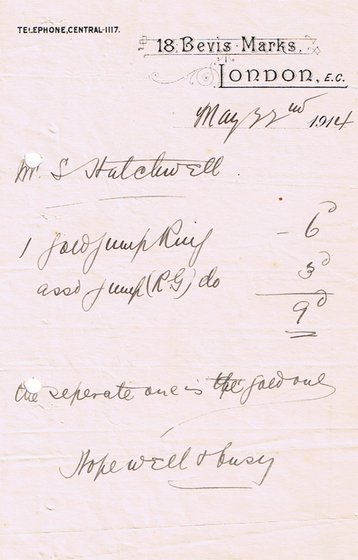 TELEPHONE, CENTRAL-1117.
18 Bevis Marks,
London, E.C.
May 22nd 1914
Mr S Hatchwell
1 gold jump Ring - 6d
assd jump (R G) do 3d
9d
the seperate one is the gold one
Hope well & busy